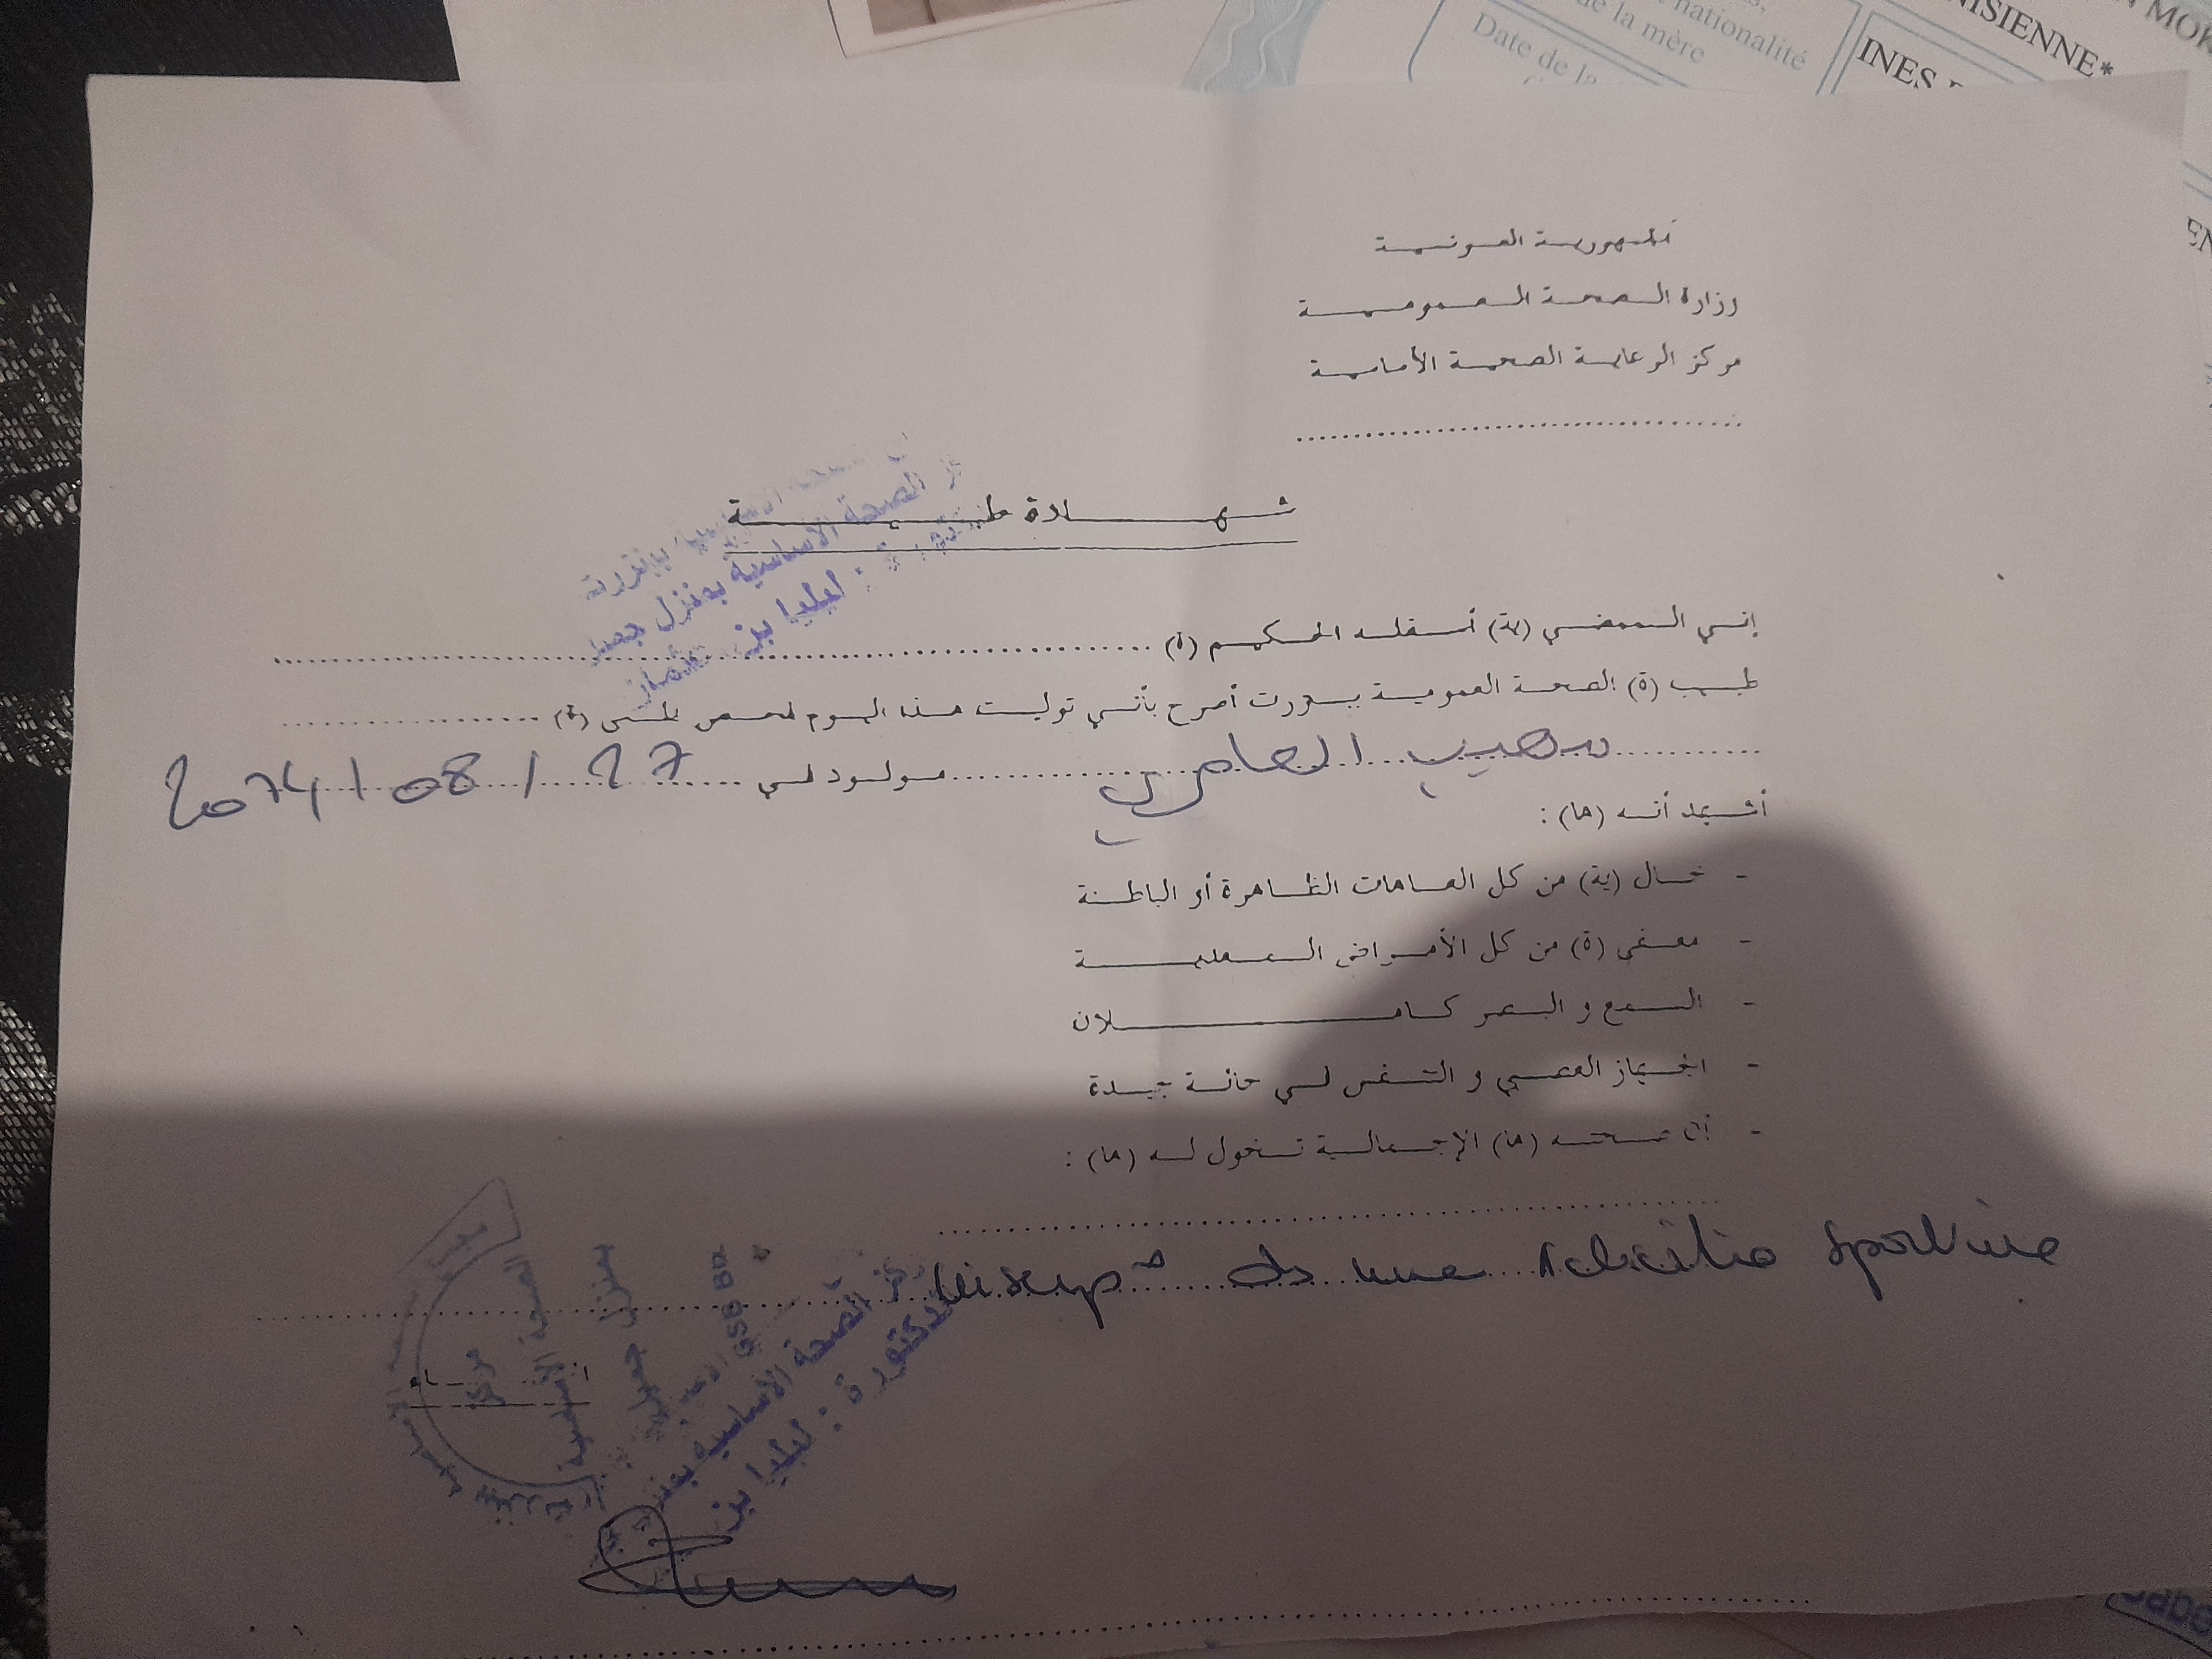 de la mère
nationalité
Date de la
INES
الجمهورية التونسية
وزارة الصحة العمومية
مركز الرعاية الصحية الأساسية
شهادة طبية
الصحة الأساسية بمنزل جميل
إني الممضي (ية) أسفله الحكيم (ة)
طبيب (ة) الصحة العمومية ببنزرت أصرح بأنني توليت هذا اليوم فحص طبي (ة)
العامري مولود في 27 / 08 / 2014
أشهد أنه (ها) :
- خال (ية) من كل العاهات الظاهرة أو الباطنة
- معفى (ة) من كل الأمراض المعدية
- السمع و البصر كاملان
- الجهاز العصبي و التنفس في حالة جيدة
- أن صحته (ها) الإجمالية تخول له (ها) :
de une Activité sportive
مركز
الصحة الأساسية
منزل جميل
الصحة الأساسية
الدكتورة :